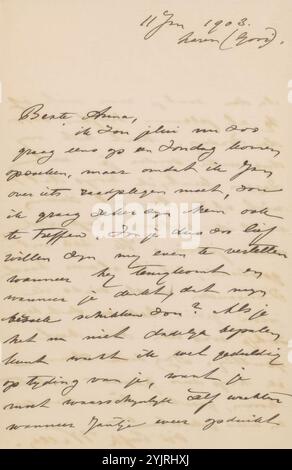 11 Jan 1903.
Laren (Gooi).
Beste Anna,
ik zou jullie nu zoo
graag eens op een Zondag komen
opzoeken, maar omdat ik Jan
over iets raadplegen moet, zou
ik graag zeker zijn hem ook
te treffen. Zou je dus zoo lief
willen zijn mij even te vertellen
wanneer hij terugkomt en
wanneer je denkt, dat mijn
bezoek schikken zou? Als je
het nu niet dadelijk bepalen
kunt wacht ik wel geduldig
op tijding van je, want je
moet waarschijnlijk zelf wachten
wanneer Jantje weer opduikt
alamy
Image ID: 2YJRHXJ
www.alamy.com